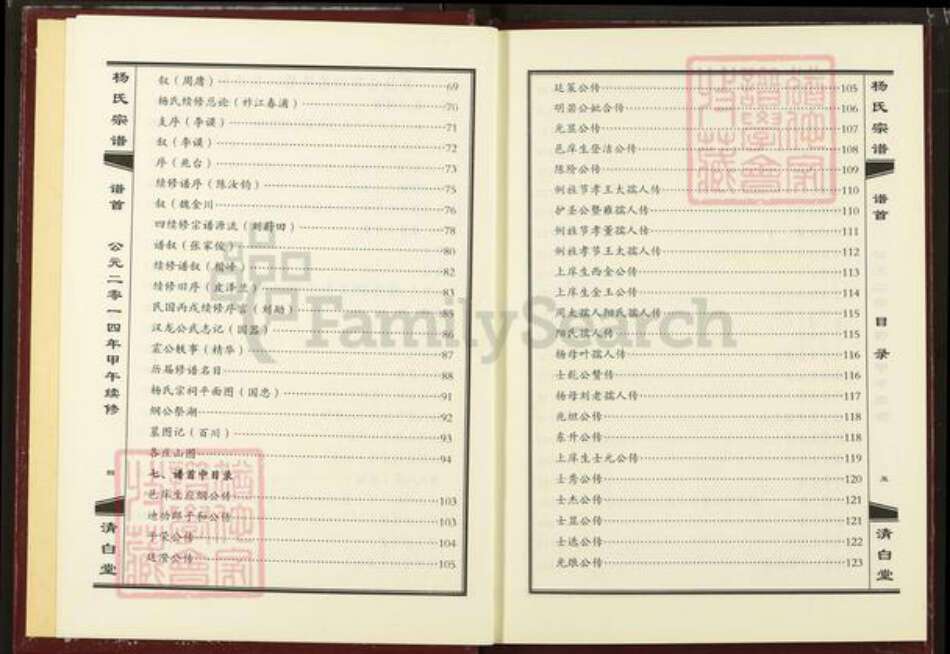 杨氏宗谱
谱首
公元二零一四年甲午续修
四
清白堂
叙（周庸）69
杨氏续修总论（柞江春浦）70
支序（李谟）71
叙（李谟）72
序（兆台）73
续修谱序（陈汝钧）75
叙（魏金川76
四续修宗谱源流（刘蔚田）78
谱叙（张家俊）80
续修谱叙（楷峰）82
续修旧序（皮泽兰）83
民国丙戌续修序言（刘勋）85
汉龙公武志记（国器）86
霖公轶事（精华）87
历届修谱名目88
杨氏宗祠平面图（国忠）91
纲公祭湖92
墓图记（百川）93
各庄山图94
七、谱首中目录
邑庠生应纲公传103
迪功郎子和公传103
子荣公传104
廷滢公传105
廷策公传105
明翠公妣合传106
光显公传107
邑庠生登洁公传108
陈阶公传109
例姓节孝王太孺人传110
护圣公暨雍孺人传110
例姓节孝董孺人传111
例姓孝节王太孺人传112
上庠生西金公传113
上庠生金玉公传114
周太孺人阳氏孺人传115
阳氏孺人传115
杨母叶孺人传116
士乾公赞传116
杨母刘老孺人传117
兆坦公传118
东升公传118
上庠生士元公传119
士秀公传120
士杰公传121
士显公传121
士选公传122
光雄公传123
杨氏宗谱
谱首
目录
五
清白堂
FamilySearch